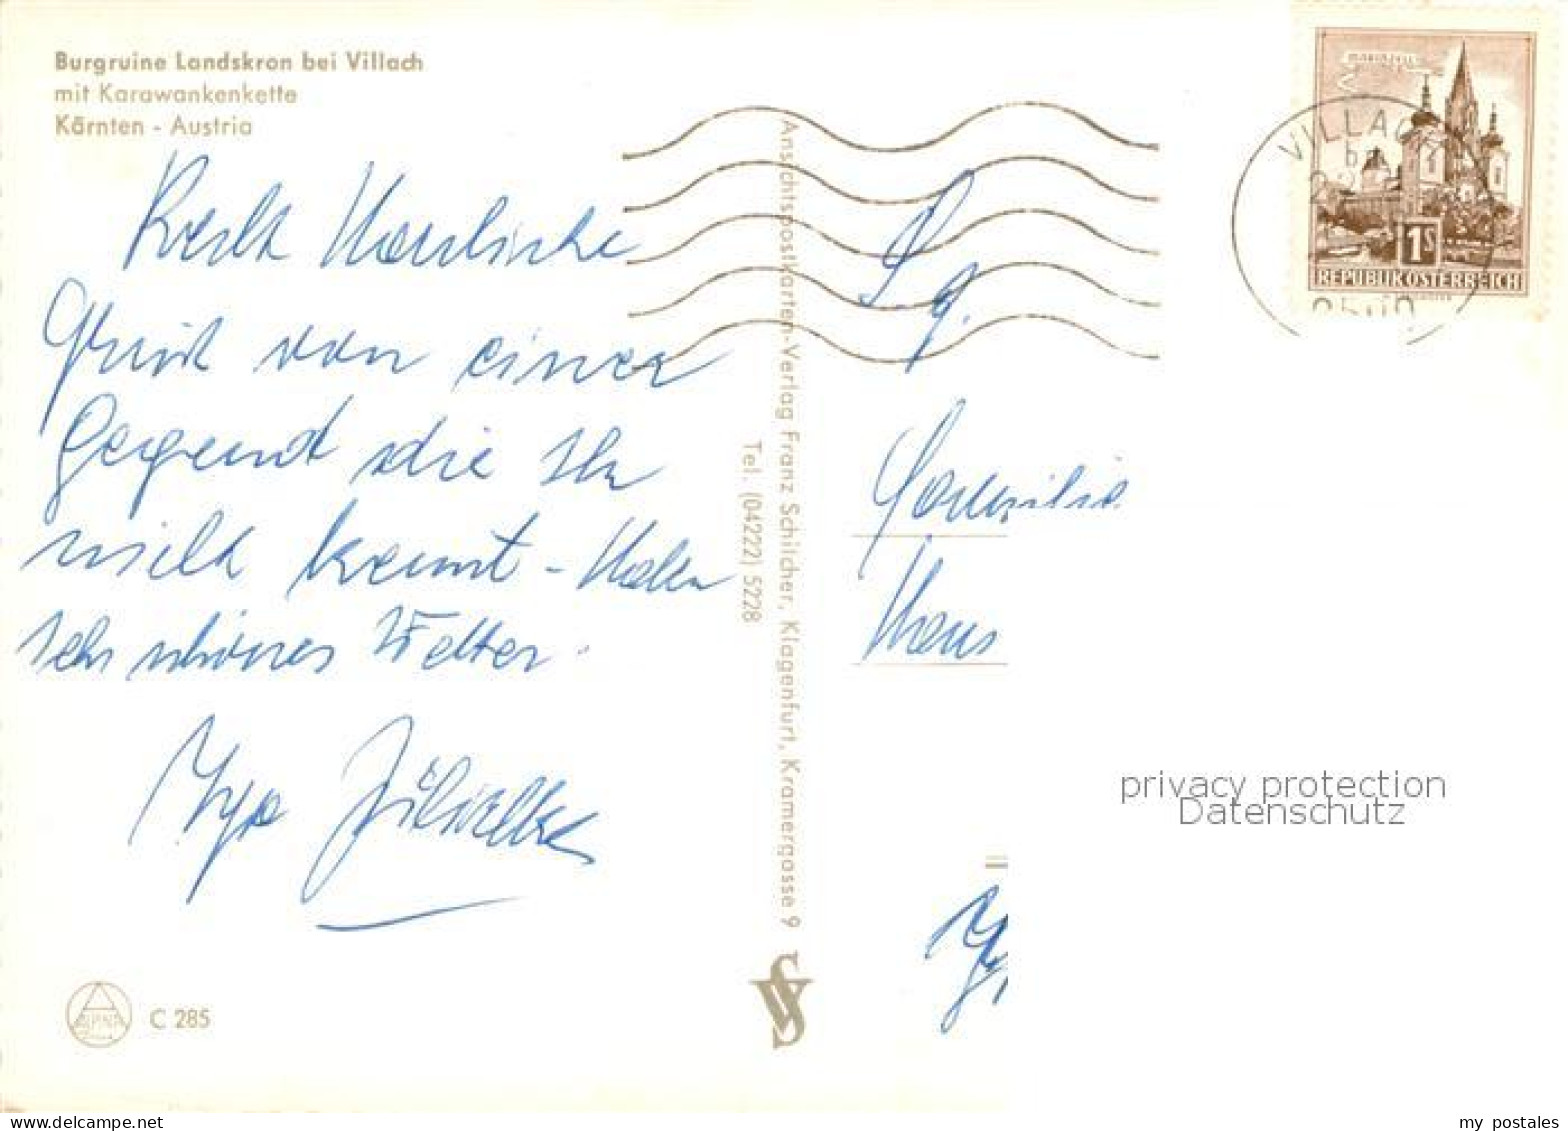 Burgruine Landskron bei Villach
mit Karawankenkette
Kärnten - Austria
Recht
Gruß von einer
Gegend die Ihr
nicht kennt - Haben
sehr schönes Wetter.
C 285
ALPINA
Ansichtspostkarten-Verlag Franz Schilcher, Klagenfurt, Kramergasse 9
Tel. (04222) 5228
MARIAZELL
VILLACH
1S
REPUBLIK ÖSTERREICH
Familie
privacy protection
Datenschutz
www.delcampe.net
my_postales